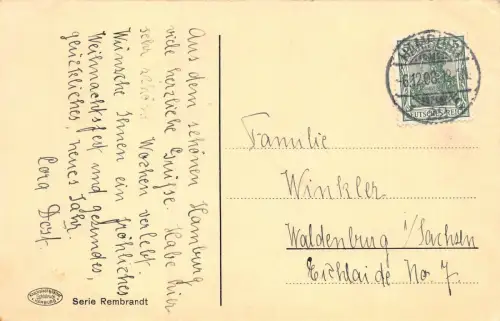 Aus dem schönen Hamburg
viele herzliche Grüsse. Habe hier
sehr schöne Wochen verlebt.
Wünsche Ihnen ein fröhliches
Weihnachtsfest und gesundes,
glückliches, neues Jahr.
Cora
Familie
Winkler
Waldenburg i/Sachsen
No. 7.
Serie Rembrandt